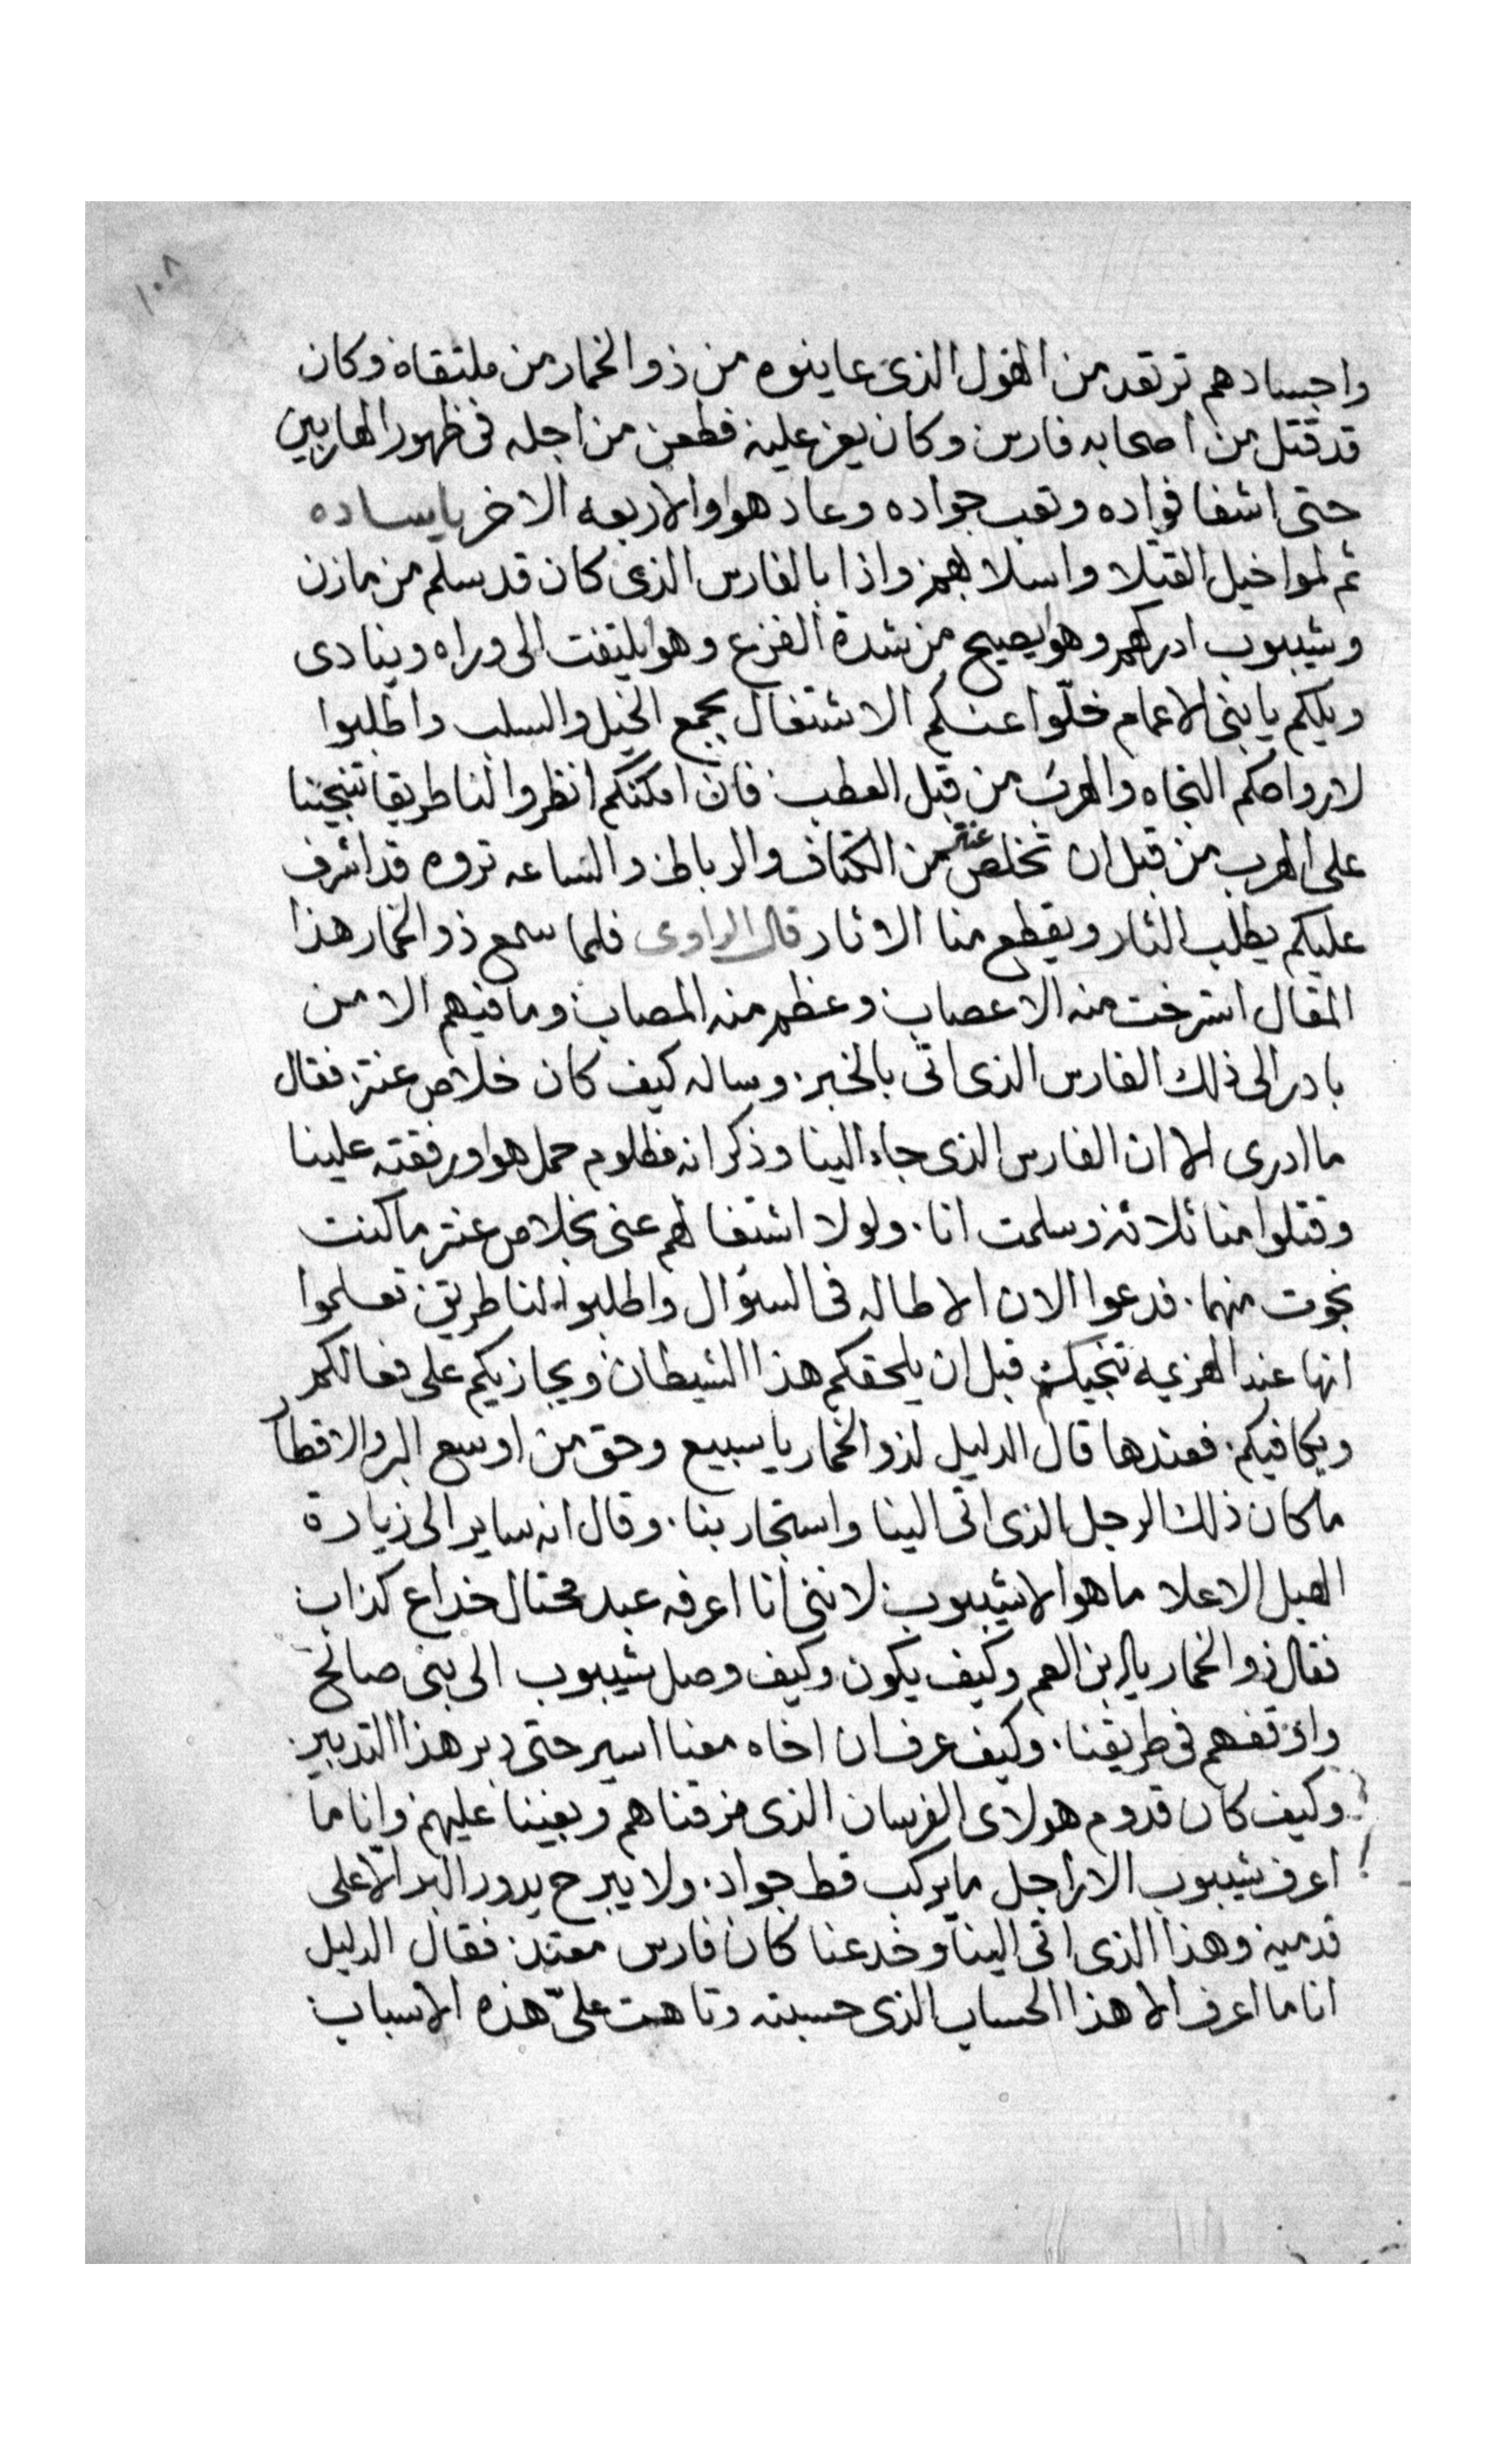 ١٠٨
واجسادهم ترتعد من الهول الذى عاينوه من ذو الخمار من ملتقاه وكان
قد قتل من اصحابه فارس وكان يعز عليه فطعن من اجله فى ظهور الهاربين
حتى اشفا فواده وتعب جواده وعاد هو والاربعه الاخر يا ساده
ثم لموا خيل القتلا واسلابهم واذا بالفارس الذى كان قد سلم من مازن
وشيبوب ادركهم وهو يصيح من شدة الفزع وهو يلتفت الى وراه وينادى
ويلكم يا بنى الاعمام خلّوا عنكم الاشتغال بجمع الخيل والسلب واطلبوا
لارواحكم النجاه والهرب من قبل العطب فان امكنكم انظروا لنا طريقا تنجينا
على الهرب من قبل ان تخلص عنتر من الكتاف والرباط والساعه تروه قد اشرف
عليكم يطلب الثار ويقطع منا الاثار قال الراوى فلما سمع ذو الخمار هذا
المقال استرخت منه الاعصاب وعظم منه المصاب وما فيهم الا من
بادر الى ذلك الفارس الذى اتى بالخبر. وساله كيف كان خلاص عنتر فقال
ما ادرى الا ان الفارس الذى جاء الينا وذكر انه مظلوم حمل هو ورفقته علينا
وقتلوا منا ثلاثه وسلمت انا. ولولا اشتغالهم عنى بخلاص عنتر ما كنت
نجوت منهما. فدعوا الان الاطاله فى السؤال واطلبوا لنا طريق تعلموا
انها عند الهزيمه تنجيكم قبل ان يلحقكم هذا الشيطان ويجازيكم على فعالكم
ويكافيكم. فعندها قال الدليل لذو الخمار يا سبيع وحق من اوسع البر والاقطار
ما كان ذلك الرجل الذى اتى الينا واستجار بنا. وقال انه ساير الى زيارة
الهبل الاعلا ما هو الا شيبوب لاننى انا اعرفه عبد محتال خداع كذاب
فقال ذو الخمار يا ابن العم وكيف يكون وكيف وصل شيبوب الى بنى صالح
واوقفهم فى طريقنا. وكيف عرف ان اخاه معنا اسير حتى دبر هذا التدبير.
وكيف كان قدوم هولاى الفرسان الذى مزقناهم وبغينا عليهم وانا ما
اعرف شيبوب الا راجل ما يركب قط جواد. ولا يبرح يدور البر الا على
قدميه وهذا الذى اتى الينا وخدعنا كان فارس معتد فقال الدليل
انا ما اعرف الا هذا الحساب الذى حسبته وتاهت علىّ هذه الاسباب